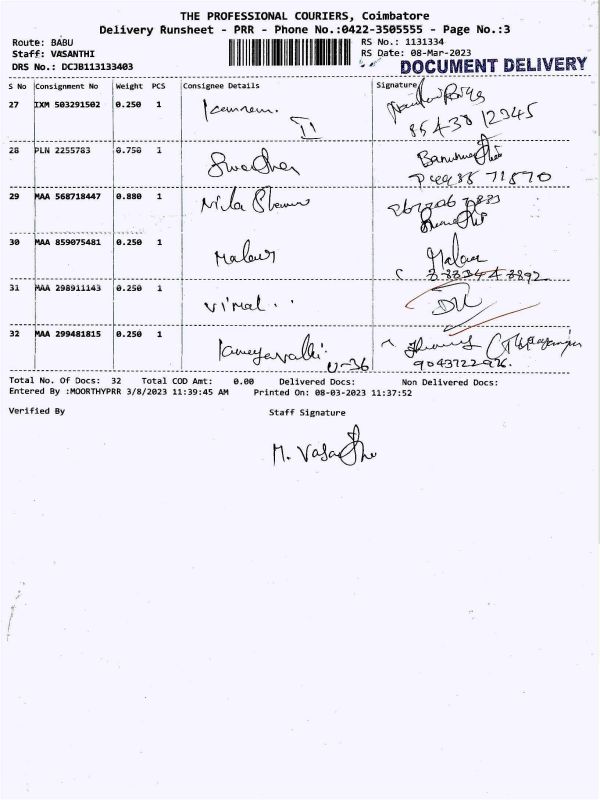 THE PROFESSIONAL COURIERS, Coimbatore
Delivery Runsheet - PRR - Phone No.:0422-3505555 - Page No.:3
Route: BABU RS No.: 1131334
Staff: VASANTHI RS Date: 08-Mar-2023
DRS No.: DCJB113133403 DOCUMENT DELIVERY
S No Consignment No Weight PCS Consignee Details Signature
27 IXM 503291502 0.250 1
85438 12345
II
28 PLN 2255783 0.750 1
29 MAA 568718447 0.880 1 Nila
30 MAA 859075481 0.250 1
31 MAA 298911143 0.250 1 Vimal..
32 MAA 299481815 0.250 1
U-36 9043722926.
Total No. Of Docs: 32 Total COD Amt: 0.00 Delivered Docs: Non Delivered Docs:
Entered By :MOORTHYPRR 3/8/2023 11:39:45 AM Printed On: 08-03-2023 11:37:52
Verified By Staff Signature
M. Vasanthi